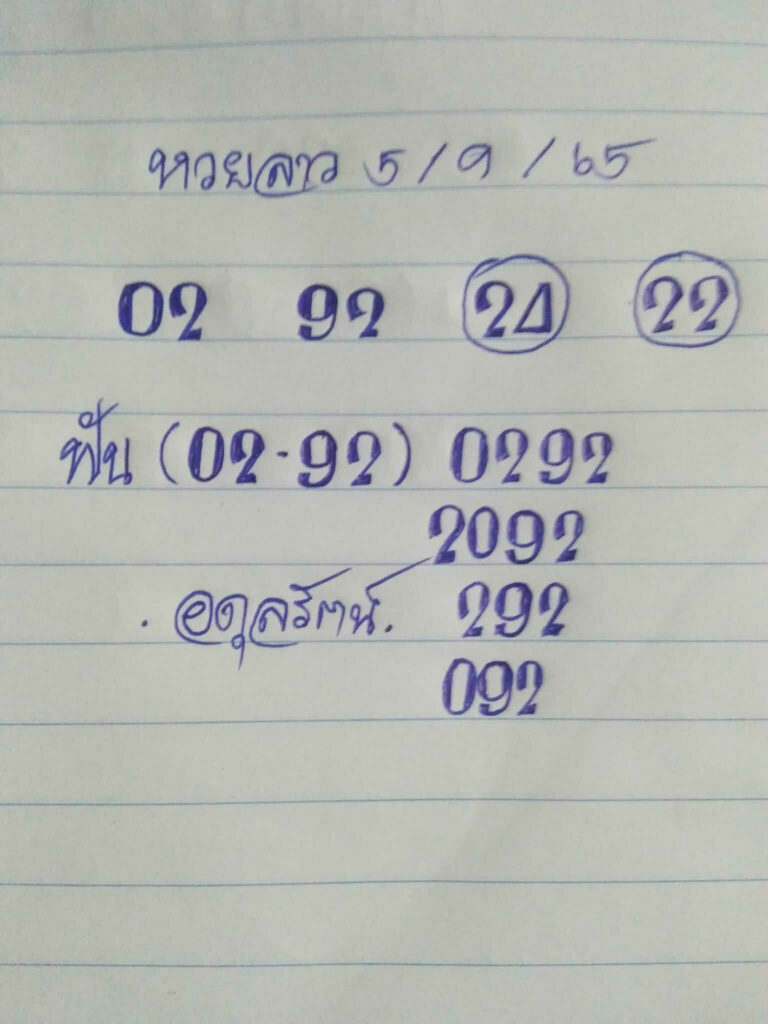 หวยลาว 5/9/65
02 92 24 22
ฟัน (02-92) 0292
2092
.อดุลรัตน์. 292
092